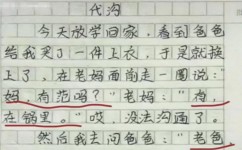 代沟
今天放学回家，看到爸爸
给我买了一件上衣，于是就换
上了，在老妈面前走一圈说：“
妈，有范吗？”老妈：“有，
在锅里。”哎，没法沟通了。
然后我去问爸爸：“老爸，